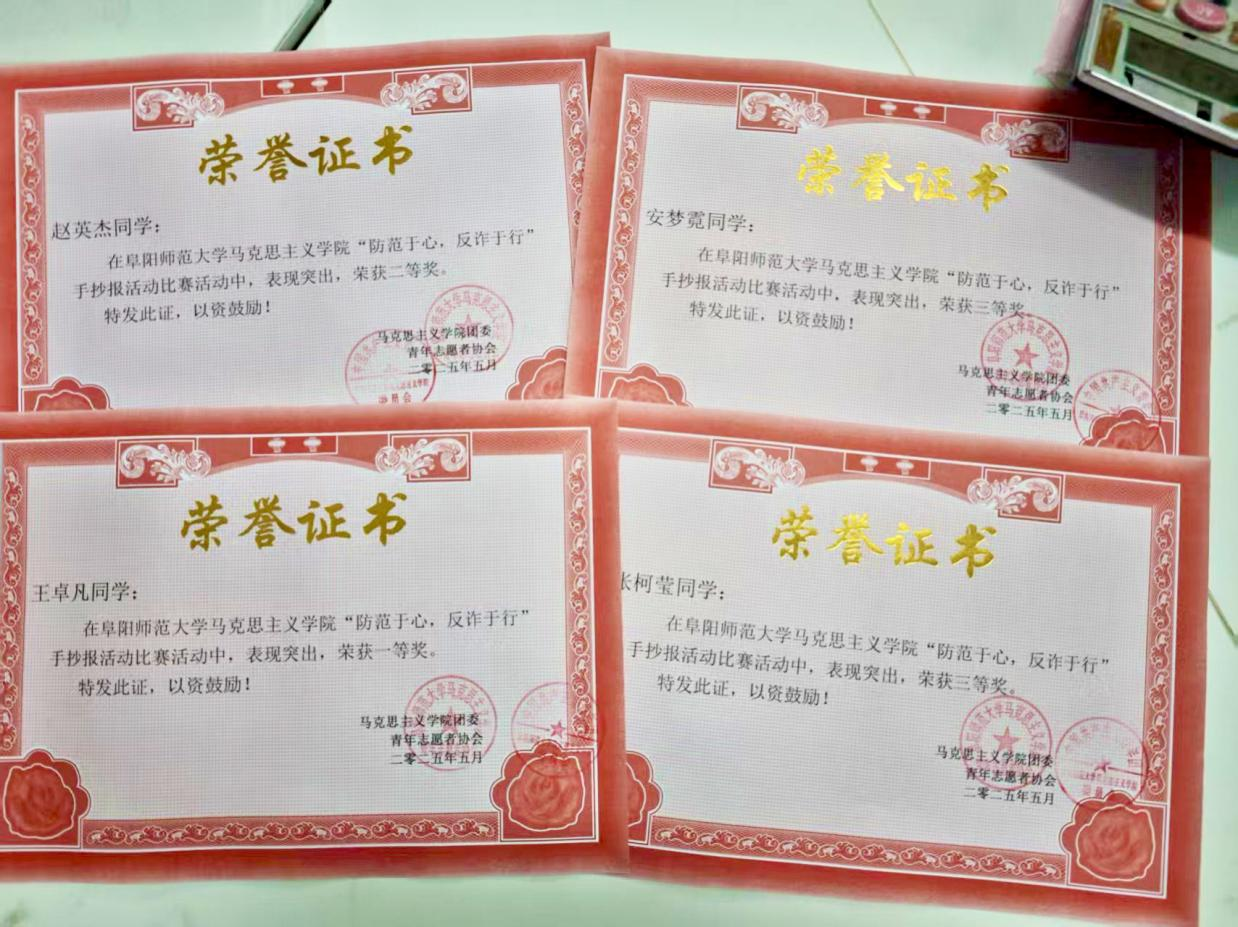 荣誉证书
赵英杰同学：
在阜阳师范大学马克思主义学院“防范于心，反诈于行”
手抄报活动比赛活动中，表现突出，荣获二等奖。
特发此证，以资鼓励！
马克思主义学院团委
青年志愿者协会
二零二五年五月
荣誉证书
安梦霓同学：
在阜阳师范大学马克思主义学院“防范于心，反诈于行”
手抄报活动比赛活动中，表现突出，荣获三等奖。
特发此证，以资鼓励！
马克思主义学院团委
青年志愿者协会
二零二五年五月
荣誉证书
王卓凡同学：
在阜阳师范大学马克思主义学院“防范于心，反诈于行”
手抄报活动比赛活动中，表现突出，荣获一等奖。
特发此证，以资鼓励！
马克思主义学院团委
青年志愿者协会
二零二五年五月
荣誉证书
张柯莹同学：
在阜阳师范大学马克思主义学院“防范于心，反诈于行”
手抄报活动比赛活动中，表现突出，荣获三等奖。
特发此证，以资鼓励！
马克思主义学院团委
青年志愿者协会
二零二五年五月